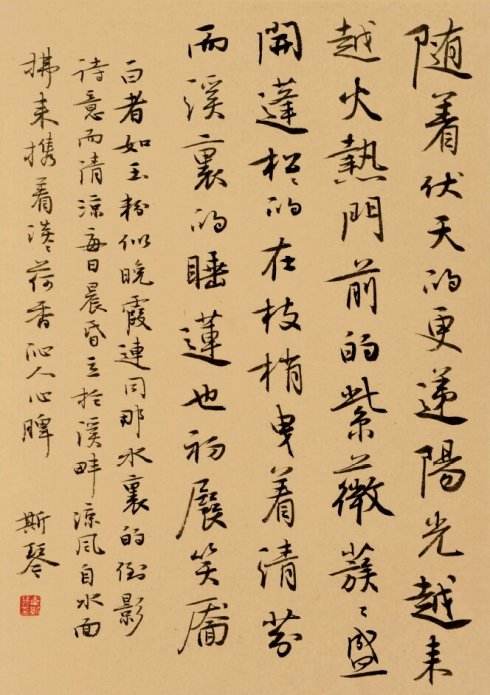 随着伏天的更递陽光越来
越火熱門前的紫薇蔟々盛
開蓬松々的在枝梢曳着清芬
而溪裏的睡蓮也初展笑靥
白者如玉粉似晚霞連同那水裏的倒影
诗意而清凉每日晨昏立於溪畔凉风自水面
拂来携着淡々荷香沁人心脾 斯琴